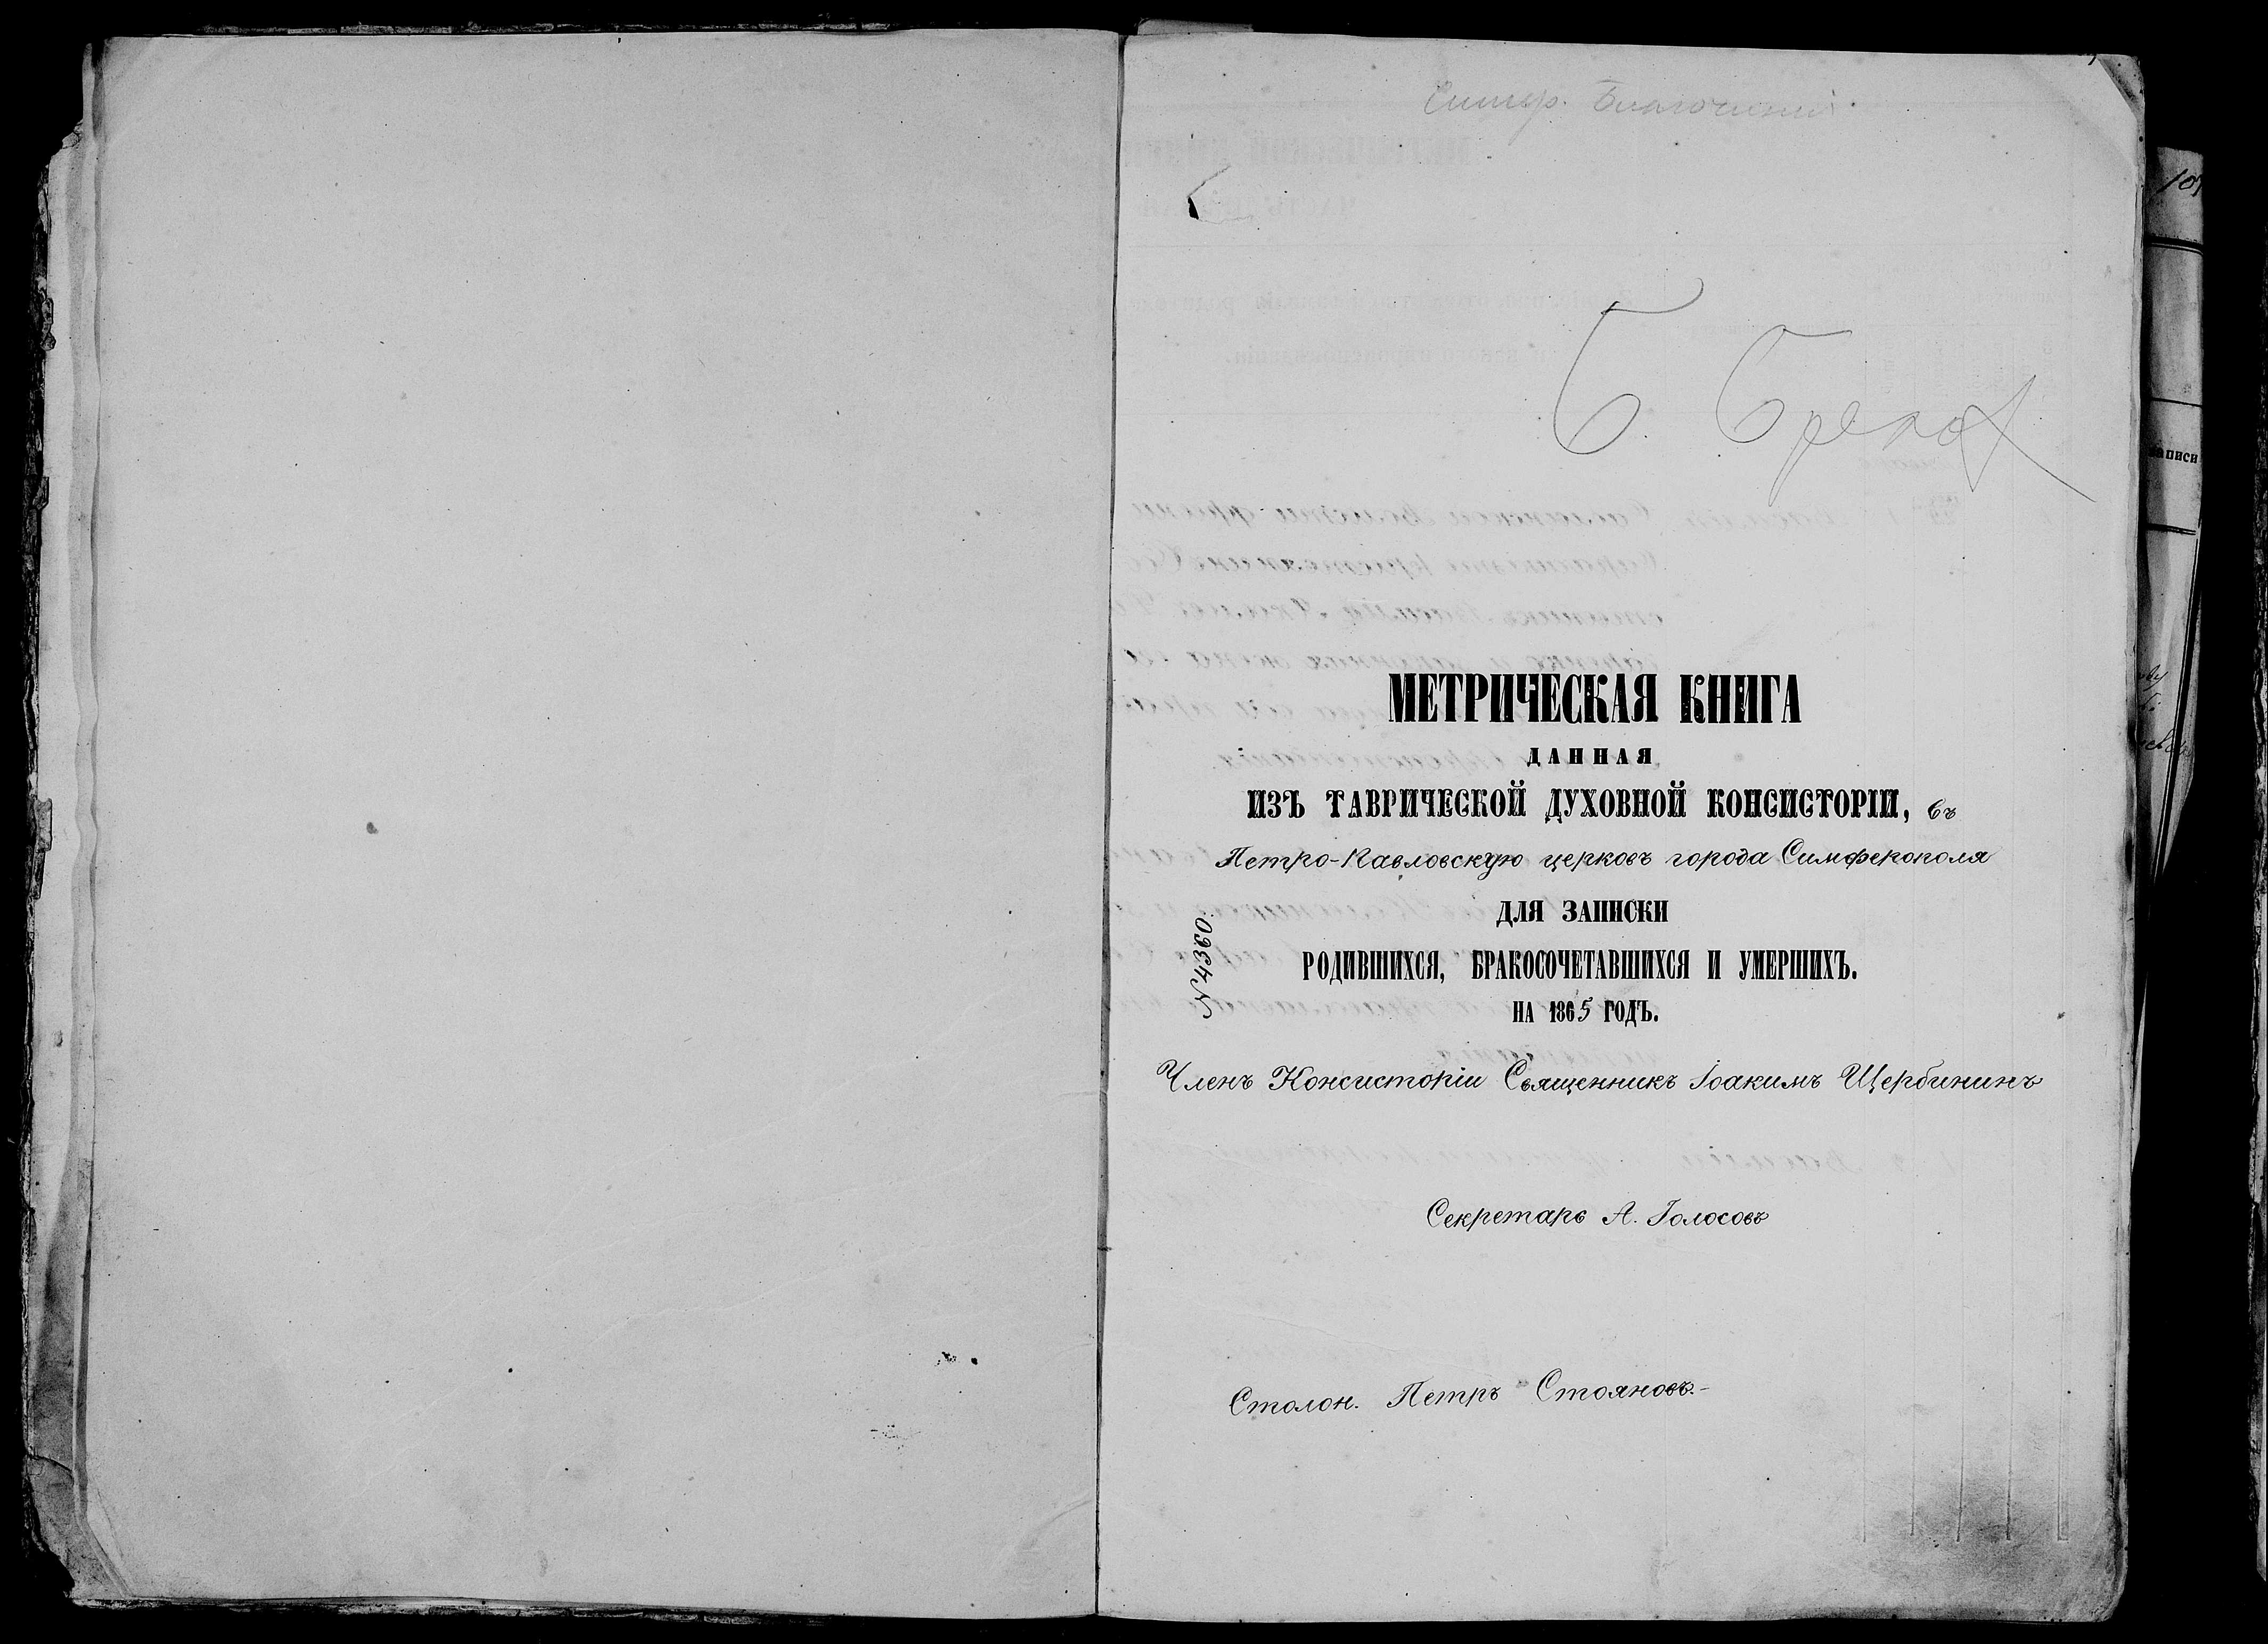 Симф. Благочиния.
Б. Брак
МЕТРИЧЕСКАЯ КНИГА
ДАННАЯ
ИЗЪ ТАВРИЧЕСКОЙ ДУХОВНОЙ КОНСИСТОРІИ, въ
Петро-Павловскую церковь города Симферополя
ДЛЯ ЗАПИСКИ
РОДИВШИХСЯ, БРАКОСОЧЕТАВШИХСЯ И УМЕРШИХЪ.
НА 1865 ГОДЪ.
№4360.
Членъ Консисторіи Священникъ Іоакимъ Щербининъ
Секретарь А. Голосовъ
Столон. Петръ Стояновъ.-
записи